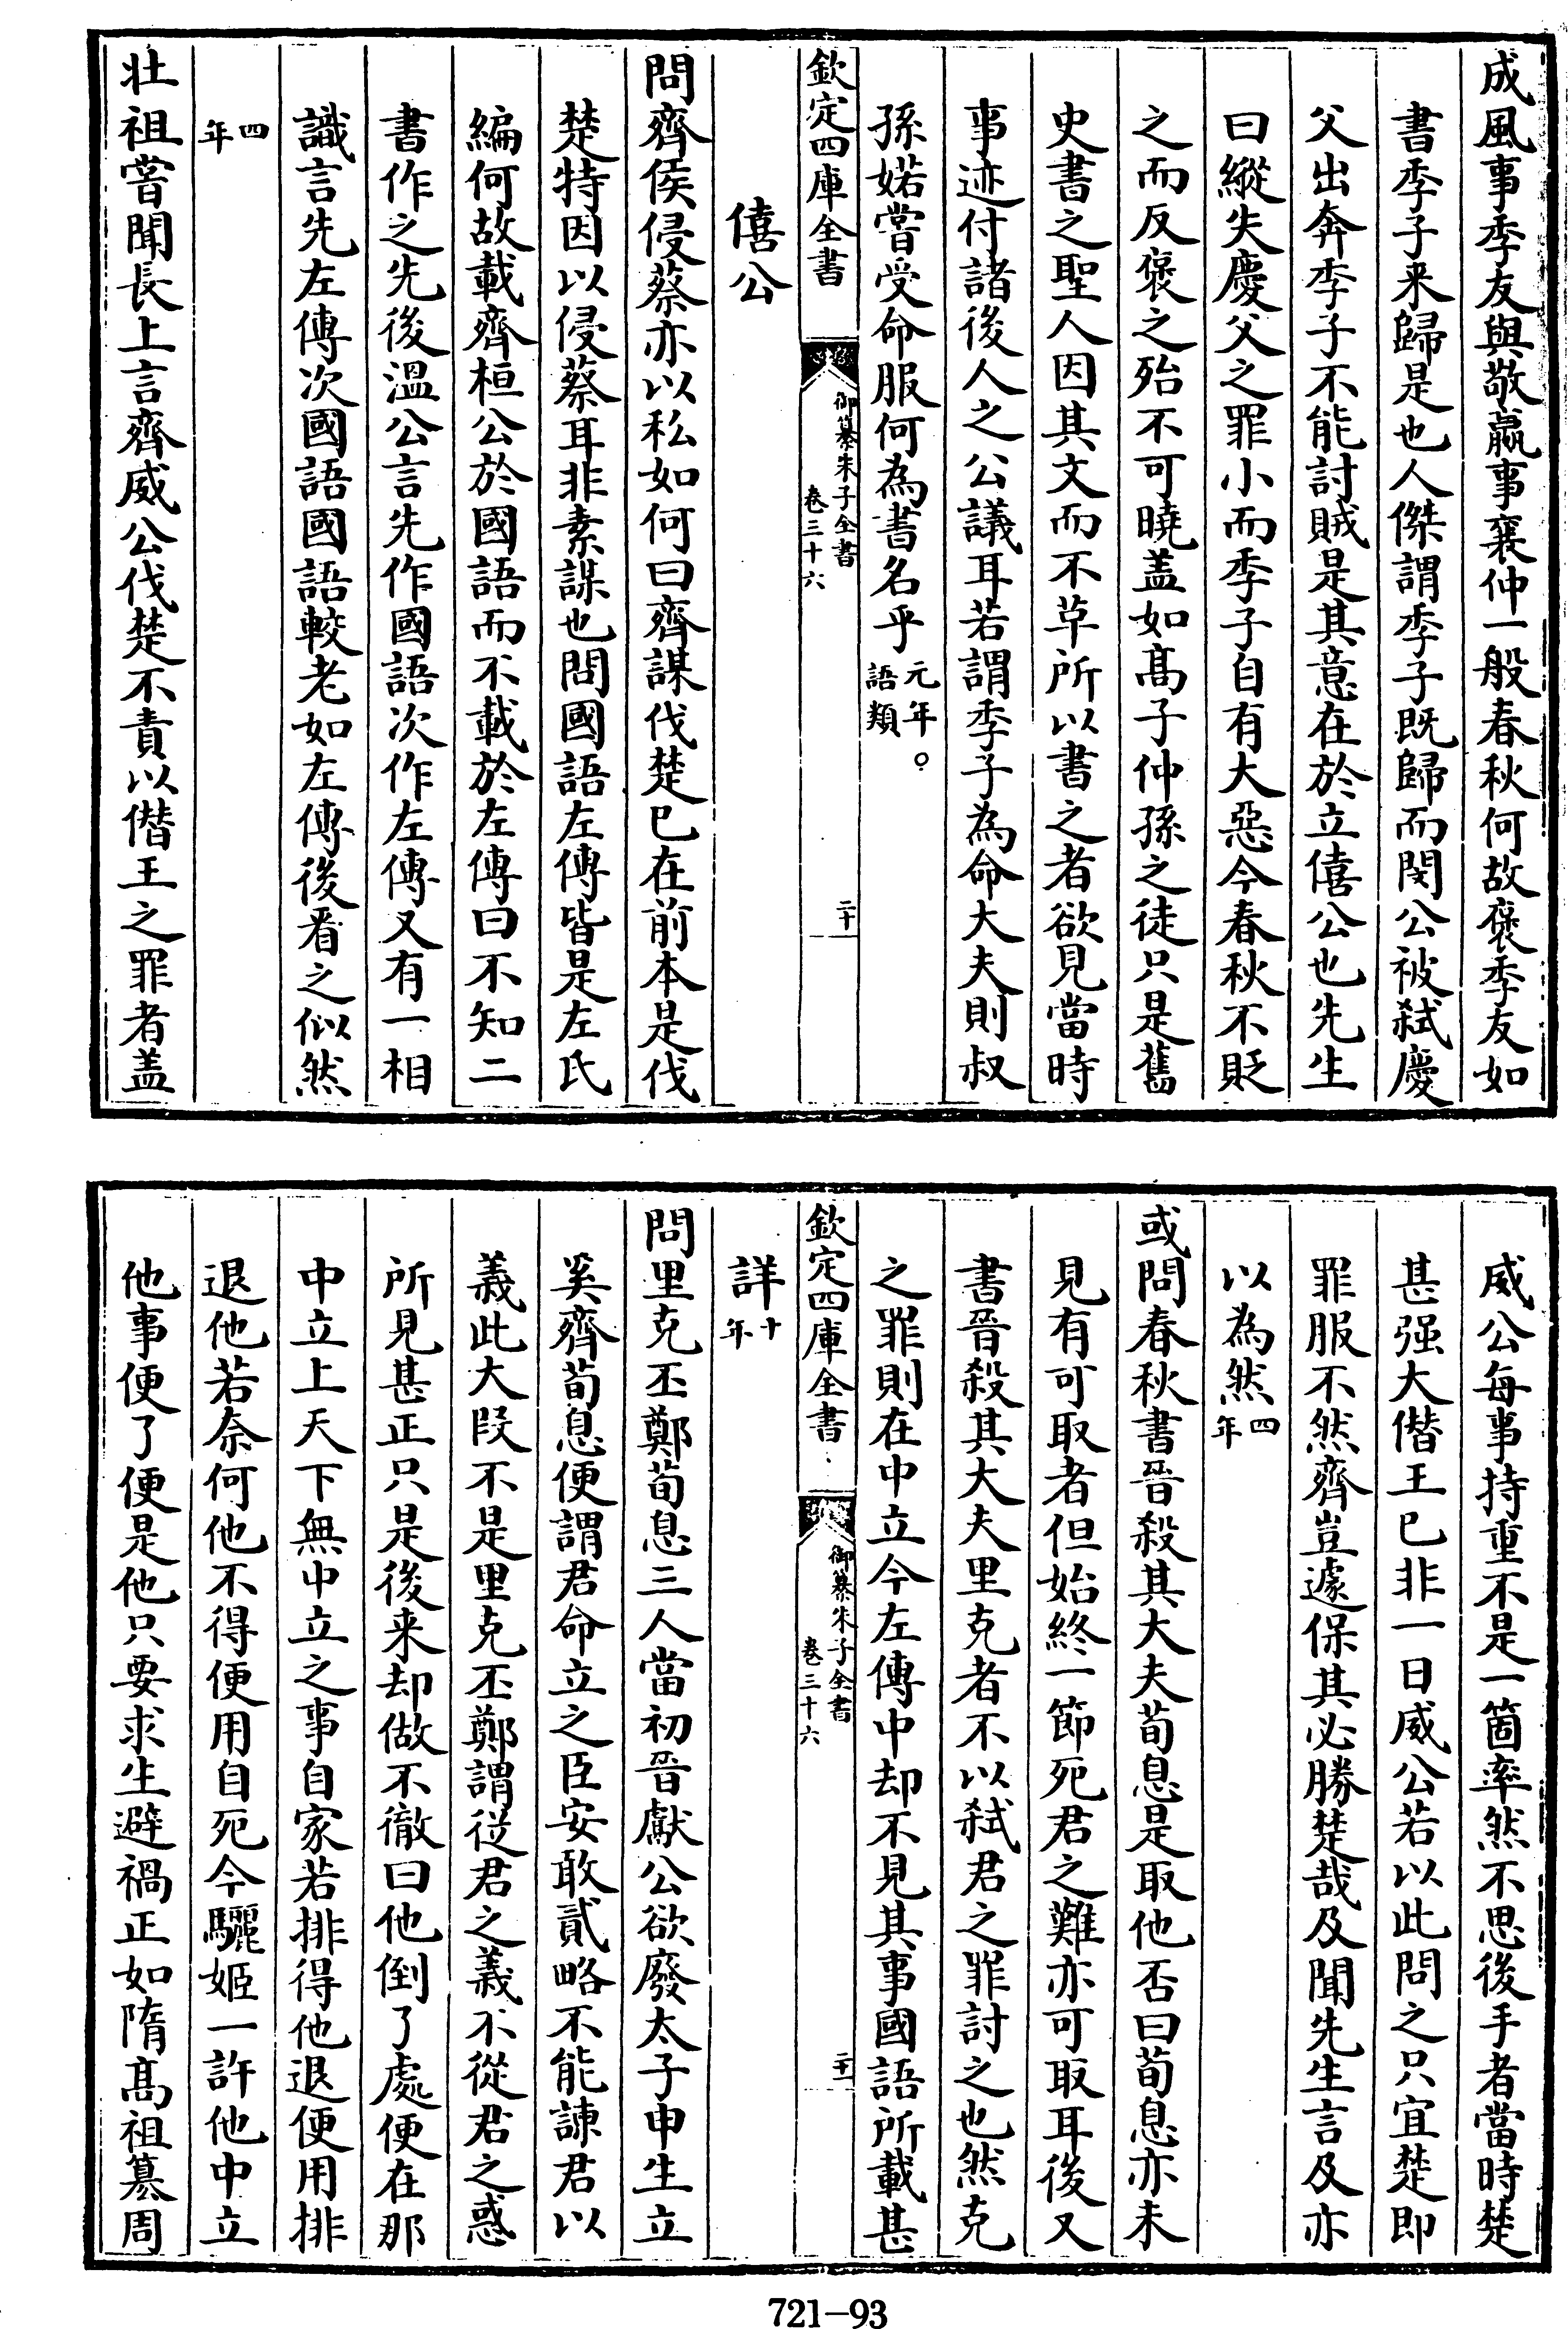 成風事季友與敬嬴事襄仲一般春秋何故褒季友如
書季子来歸是也人傑謂季子既歸而閔公被弑慶
父出奔季子不能討賊是其意在於立僖公也先生
曰縱失慶父之罪小而季子自有大惡今春秋不貶
之而反褒之殆不可曉盖如髙子仲孫之徒只是舊
史書之聖人因其文而不草所以書之者欲見當時
事迹付諸後人之公議耳若謂季子為命大夫則叔
孫婼嘗受命服何為書名乎元年。語類
欽定四庫全書
御纂朱子全書
卷三十六
二十
僖公
問齊侯侵蔡亦以私如何曰齊謀伐楚已在前本是伐
楚特因以侵蔡耳非素謀也問國語左傳皆是左氏
編何故載齊桓公於國語而不載於左傳曰不知二
書作之先後溫公言先作國語次作左傳又有一相
識言先左傳次國語國語較老如左傳後看之似然
四年
壮祖嘗聞長上言齊威公伐楚不責以僭王之罪者盖
威公每事持重不是一箇率然不思後手者當時楚
甚强大僭王已非一日威公若以此問之只宜楚即
罪服不然齊豈遽保其必勝楚哉及聞先生言及亦
以為然四年
或問春秋書晉殺其大夫荀息是取他否曰荀息亦未
見有可取者但始終一節死君之難亦可取耳後又
書晉殺其大夫里克者不以弑君之罪討之也然克
之罪則在中立今左傳中却不見其事國語所載甚
欽定四庫全書
御纂朱子全書
卷三十六
二十一
詳十年
問里克丕鄭荀息三人當初晉獻公欲廢太子申生立
奚齊荀息便謂君命立之臣安敢貳略不能諫君以
義此大段不是里克丕鄭謂從君之義不從君之惑
所見甚正只是後来却做不徹曰他倒了處便在那
中立上天下無中立之事自家若排得他退便用排
退他若奈何他不得便用自死今驪姬一許他中立
他事便了便是他只要求生避禍正如隋髙祖篡周
721-93